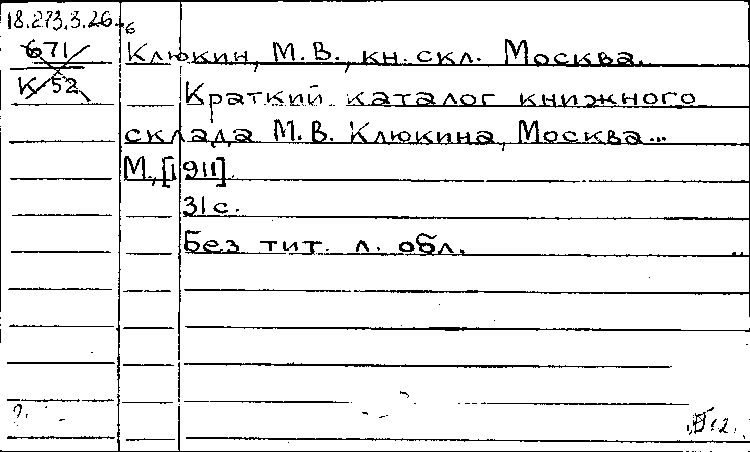 18.273.3.26-6
671
К-52
Клюкин, М.В., кн. скл. Москва.
Краткий каталог книжного
склада М.В. Клюкина, Москва...
М., [1911]
31 с.
Без тит. л. обл.